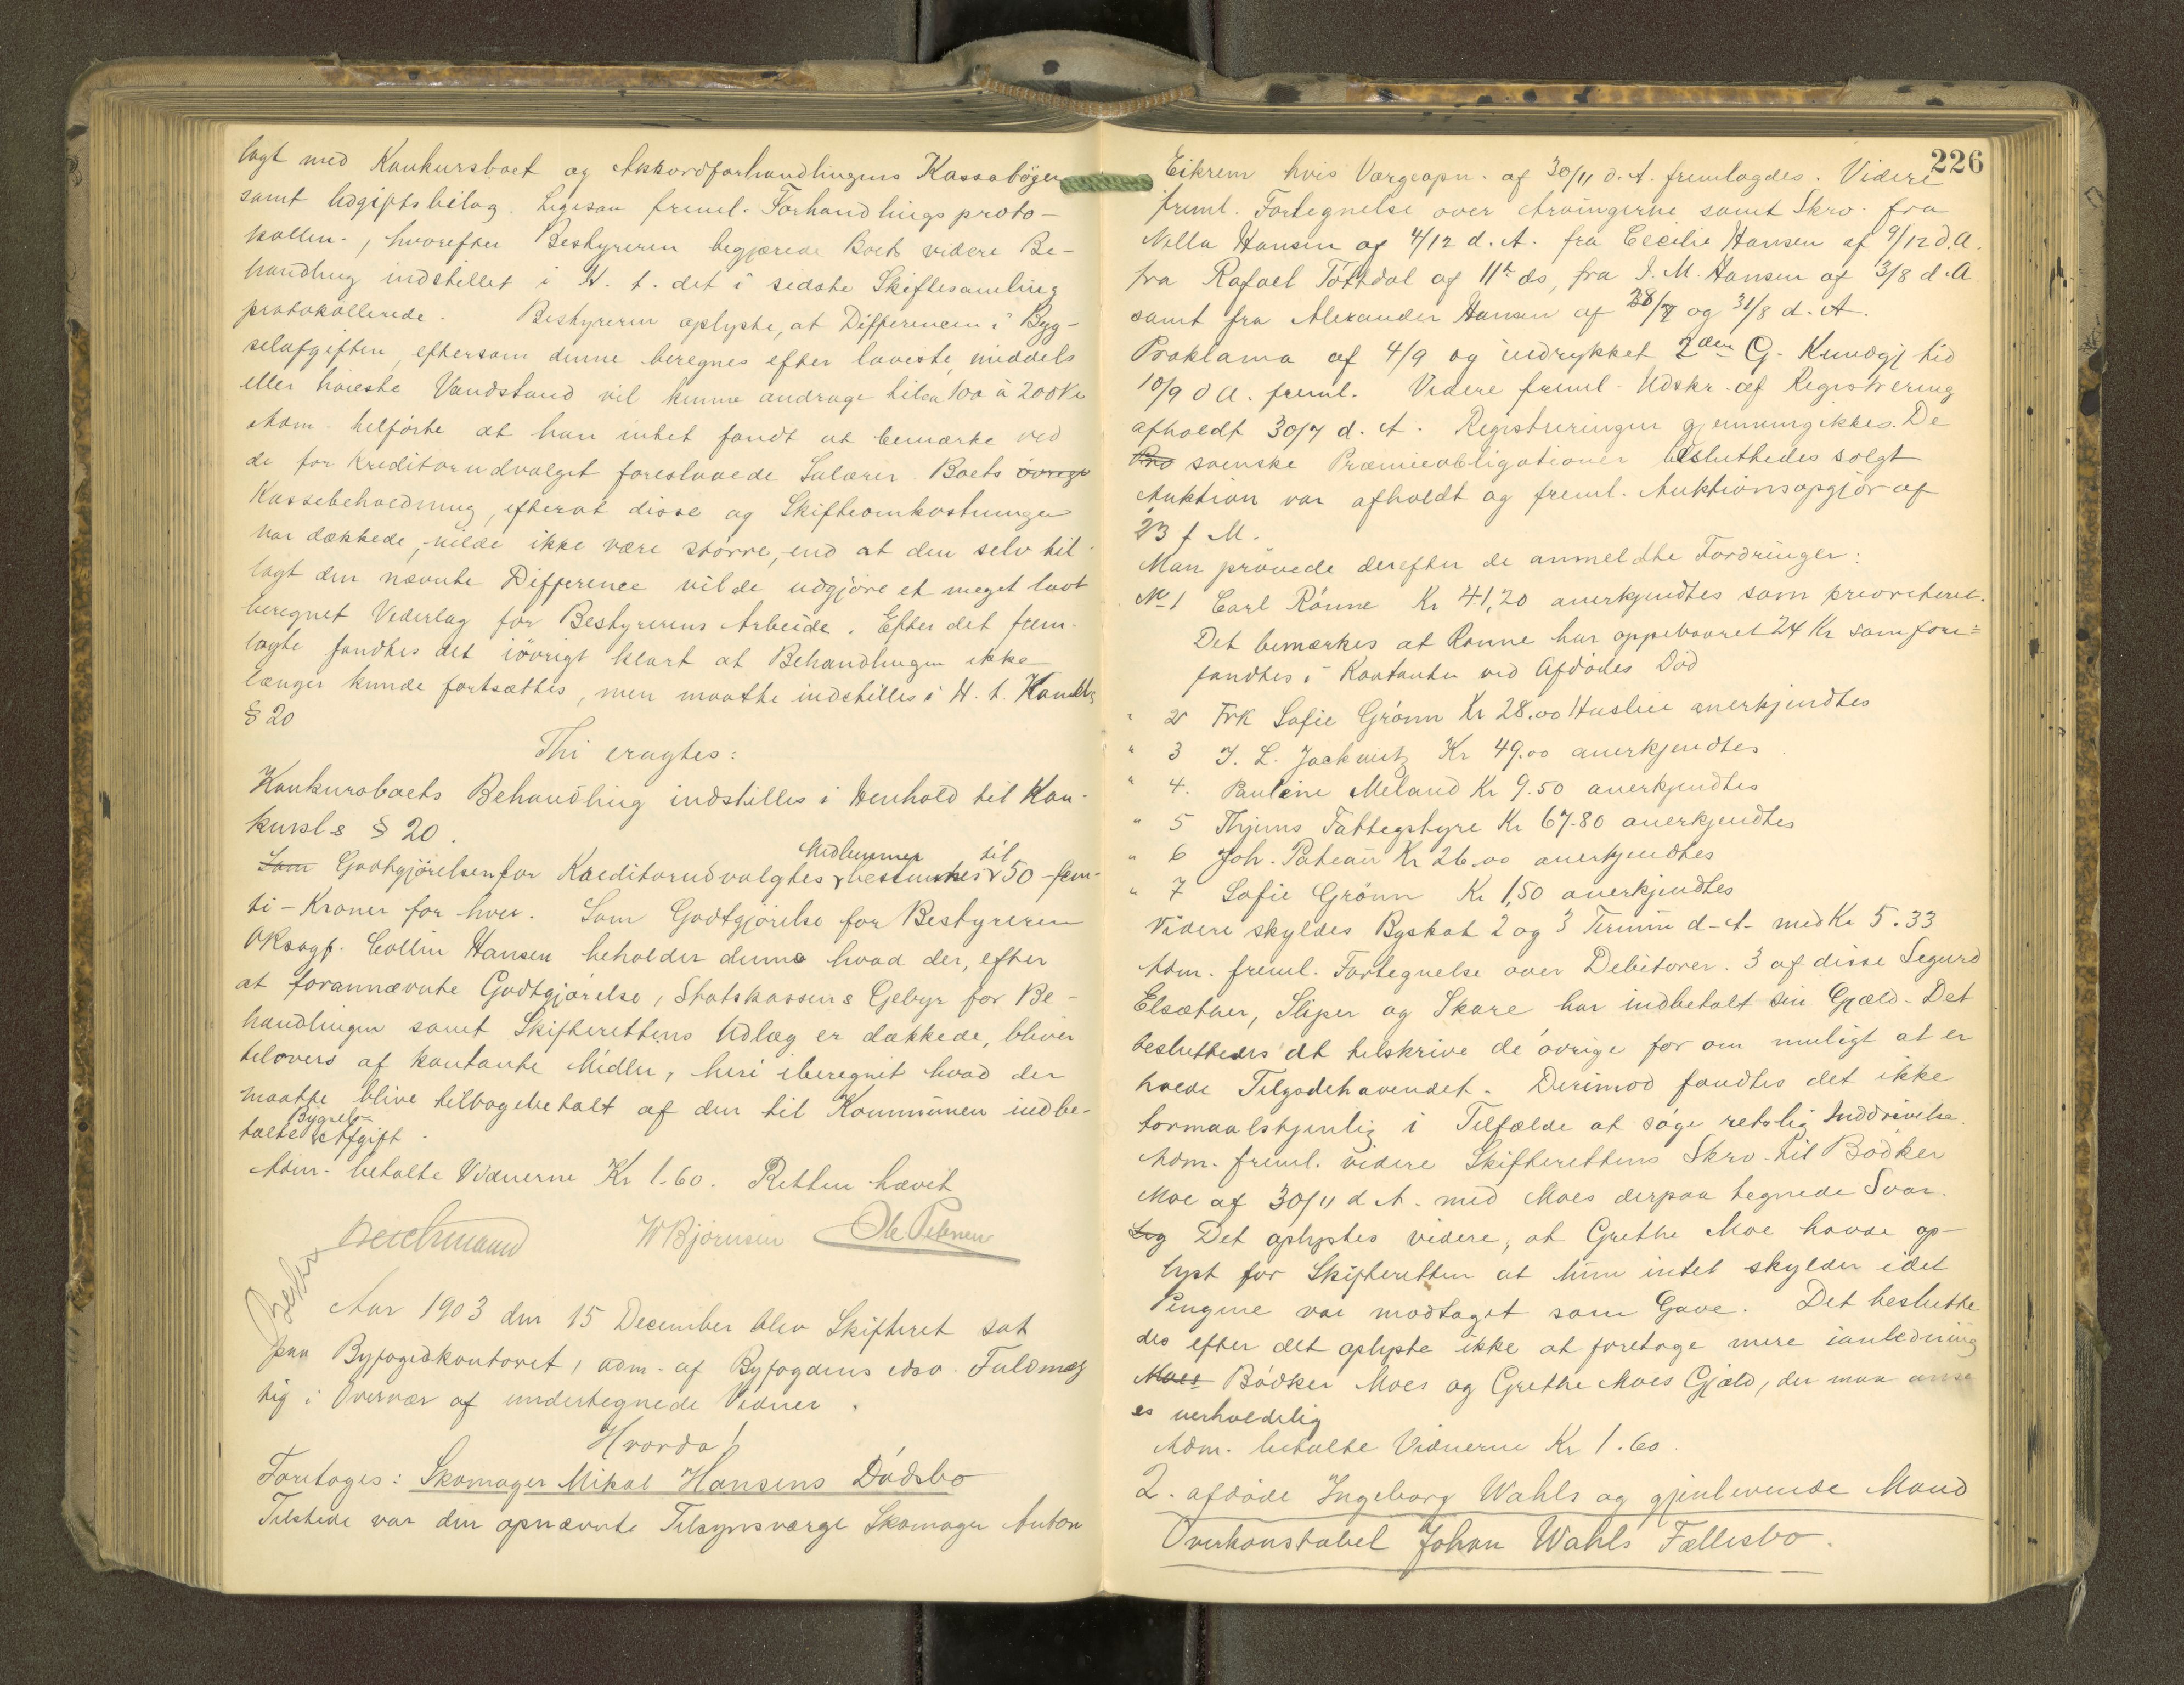 lagt med Konkursboet og Akkordforhandlingens Kassabøger
samt Udgiftsbilag. Ligesaa freml. Forhandlingsproto-
kollen., hvorefter Bestyreren begjærede Boets videre Be-
handling indstillet i H. t. det i sidste Skiftesamling
protokollerede. Bestyreren oplyste, at Differencen i Byg-
selafgiften, eftersom denne beregnes efter laveste, middels
eller høieste Vandstand vil kunne andrage til ca 100 à 200 Kr
Adm. tilførte at han intet fandt at bemærke ved
de for Kreditorudvalget foreslaaede Salærer. Boets øvrige
Kassebeholdning, efterat disse og Skifteomkostninger
var dækkede, vilde ikke være større, end at den selv til-
lagt den nævnte Difference vilde udgjøre et meget lavt
beregnet Vederlag for Bestyrerens Arbeide. Efter det frem-
lagte fandtes det iøvrigt klart at Behandlingen ikke
længer kunde fortsættes, men maatte indstilles i H. t. Konkls
§ 20
Thi eragtes:
Konkursboets Behandling indstilles i Henhold til Kon-
kursl-s § 20.
Som Godtgjørelsen for Kreditorudvalgtes Medlemmer bestemtes til 50 - fem-
ti - Kroner for hver. Som Godtgjørelse for Bestyreren
ORsagf. Collin Hansen beholder denne hvad der, efter
at forannævnte Godtgjørelse, Statskassens Gebyr for Be-
handlingen samt Skifterettens Udlæg er dækkede, bliver
tilovers af kontante Midler, heri iberegnet hvad der
maatte blive tilbagebetalt af den til Kommunen indbe-
talte Bygsels-Afgift.
Adm. betalte Vidnerne Kr 1.60. Retten hævet
Beichmann W Bjørnsen Ole Petersen
Aar 1903 den 15 December blev Skifteret sat
paa Byfogedkontoret, adm. af Byfogdens edsv. Fuldmæg
tig i Overvær af undertegnede Vidner.
Hvorda!
Foretoges: Skomager Mikal Hansens Dødsbo
Tilstede var den opnævnte Tilsynsværge Skomager Anton
226
Eikrem hvis Værgeopn. af 30/11 d. A. fremlagdes. Videre
freml. Fortegnelse over Arvingerne samt Skrv. fra
Nella Hansen af 4/12 d. A. fra Cecilie Hansen af 9/12 d. A.
fra Rafael Tøttdal af 11te ds, fra I. M. Hansen af 3/8 d. A
samt fra Alexander Hansen af 28/7 og 31/8 d. A.
Proklama af 4/9 og indrykket 2den G. Kundgj tid
10/9 d A. freml. Videre freml. Udskr. af Registrering
afholdt 30/7 d. A. Registreringen gjennemgikkes. De
Pro svenske Præmieobligationer besluttedes solgt
Auktion var afholdt og freml. Auktionsopgjør af
23 f M.
Man prøvede derefter de anmeldte Fordringer:
No 1 Carl Rønne Kr 41,20 anerkjendtes som prioriteret.
Det bemærkes at Rønne har oppebaaret 24 Kr som fore=
fandtes i Kontanter ved Afdødes Død
" 2 Frk Sofie Grønn Kr 28.00 Husleie anerkjendtes
" 3 J. L. Jackwitz Kr 49.00 anerkjendtes
" 4. Pauline Meland Kr 9.50 anerkjendtes
" 5 Thjems Fattegstyre Kr 67.80 anerkjendtes
" 6 Joh. Kr 26.00 anerkjendtes
" 7 Sofie Grønn Kr 1,50 anerkjendtes
Videre skyldes Byskat 2 og 3 Termin d. A. med Kr 5.33
Adm. freml. Fortegnelse over Debitorer. 3 af disse Segurd
Elsæther, Sliper og Skare har indbetalt sin Gjæld. Det
besluttedes at tilskrive de øvrige for om muligt at er
holde Tilgodehavendet. Derimod fandtes det ikke
formaalstjenlig i Tilfælde at søge retslig Inddrivelse.
Adm. freml. videre Skifterettens Skrv. til Bødker
Moe af 30/11 d A. med Moes derpaa tegnede Svar.
Log Det oplystes videre, at Grethe Moe havde op-
lyst for Skifteretten at hun intet skylder idet
Pengene var modtaget som Gave. Det beslutte
des efter det oplyste ikke at foretage mere ianledning
Moes Bødker Moes og Grethe Moes Gjæld, der maa anse
es uerholdelig
Adm. betalte Vidnerne Kr 1.60.
2. afdøde Ingeborg Wahls og gjenlevende Mand
Overkonstabel Johan Wahls Fællesbo.